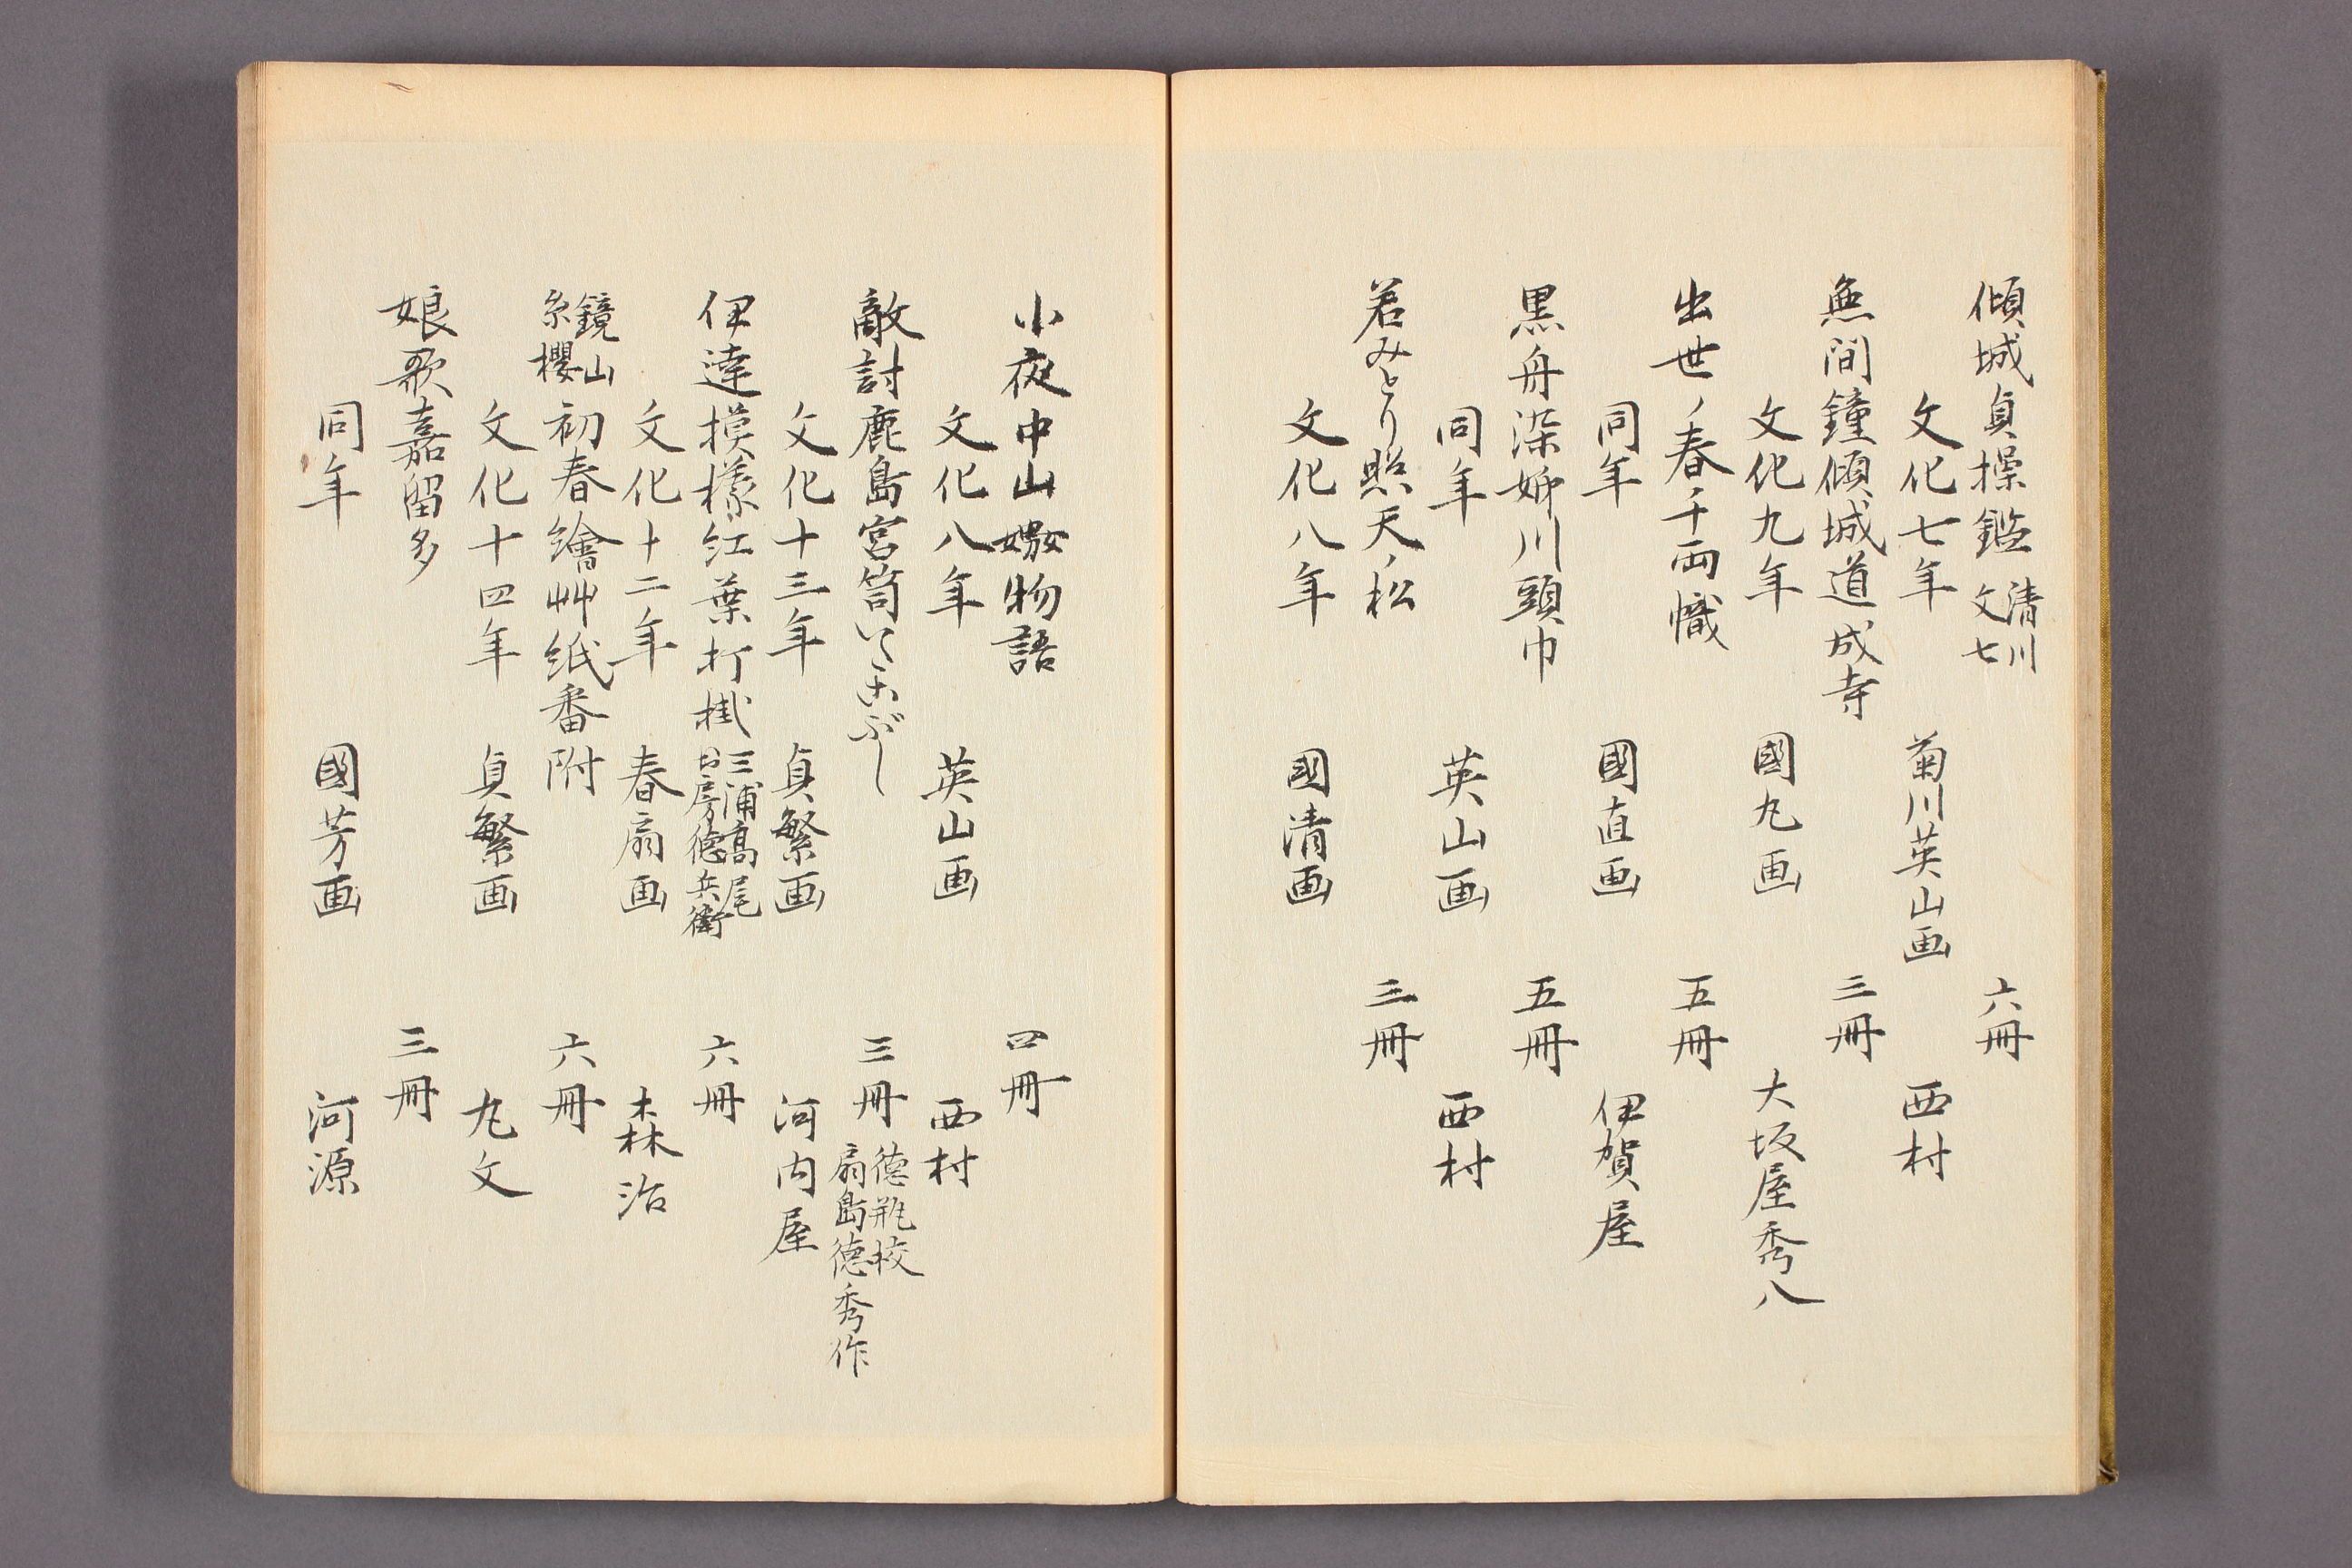 傾城貞操鑑 清川文七 六冊
文化七年 菊川英山画 西村
無間鐘傾城道成寺 三冊
文化九年 國丸画 大坂屋秀八
出世ノ春千両幟 五冊
同年 國直画 伊賀屋
黒舟染姉川頭巾 五冊
同年 英山画 西村
若みとり照天ノ松 三冊
文化八年 國清画
小夜中山物語 四冊
文化八年 英山画 西村
敵討鹿島宮笥いこぶし 三冊 徳瓶校 扇島徳秀作
文化十三年 貞繁画 河内屋
伊達摸様紅葉打掛 三浦高尾 お房徳兵衛 六冊
文化十二年 春扇画 森治
鏡山糸櫻初春繪艸紙番附 六冊
文化十四年 貞繁画 丸文
娘歌嘉留多 三冊
同年 國芳画 河源